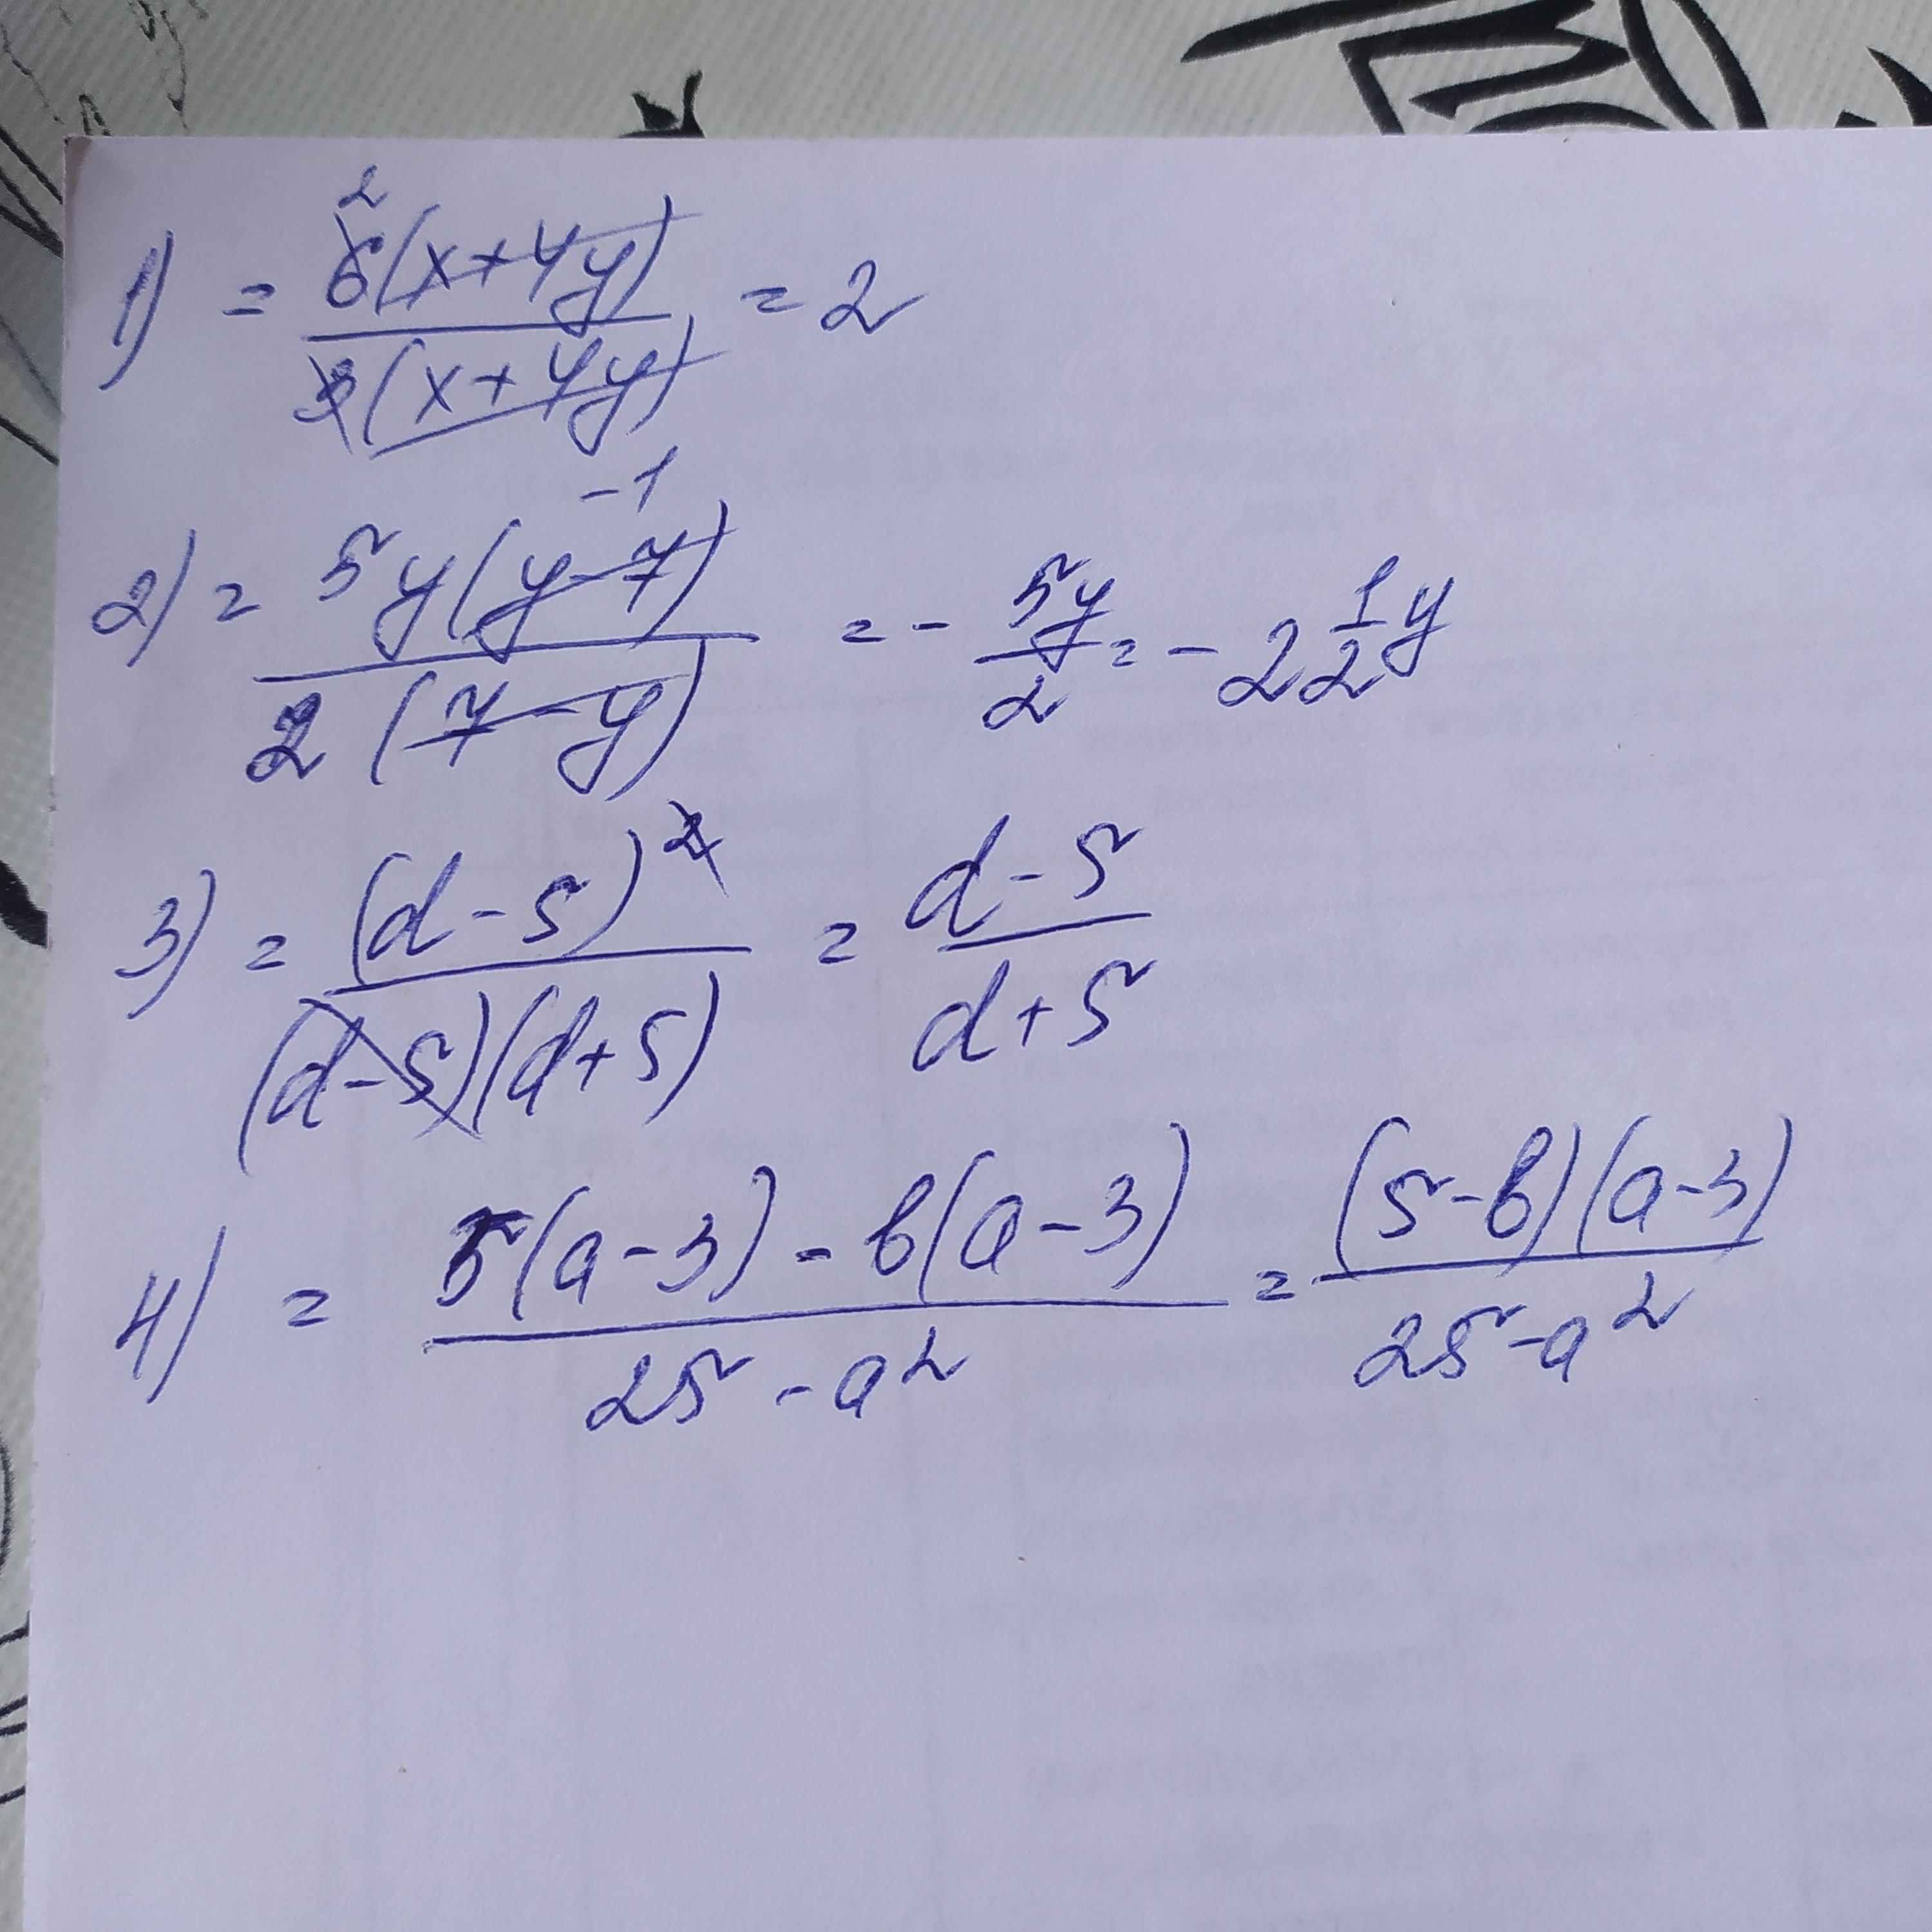 1) = 6(x+4y)/3(x+4y) = 2
2) = 5y(y-7)/2(7-y) = - 5y/2 = - 2 1/2 y
3) = (d-5)²/(d-5)(d+5) = d-5/d+5
4) = 5(a-3)-b(a-3)/25-a² = (5-b)(a-3)/25-a²